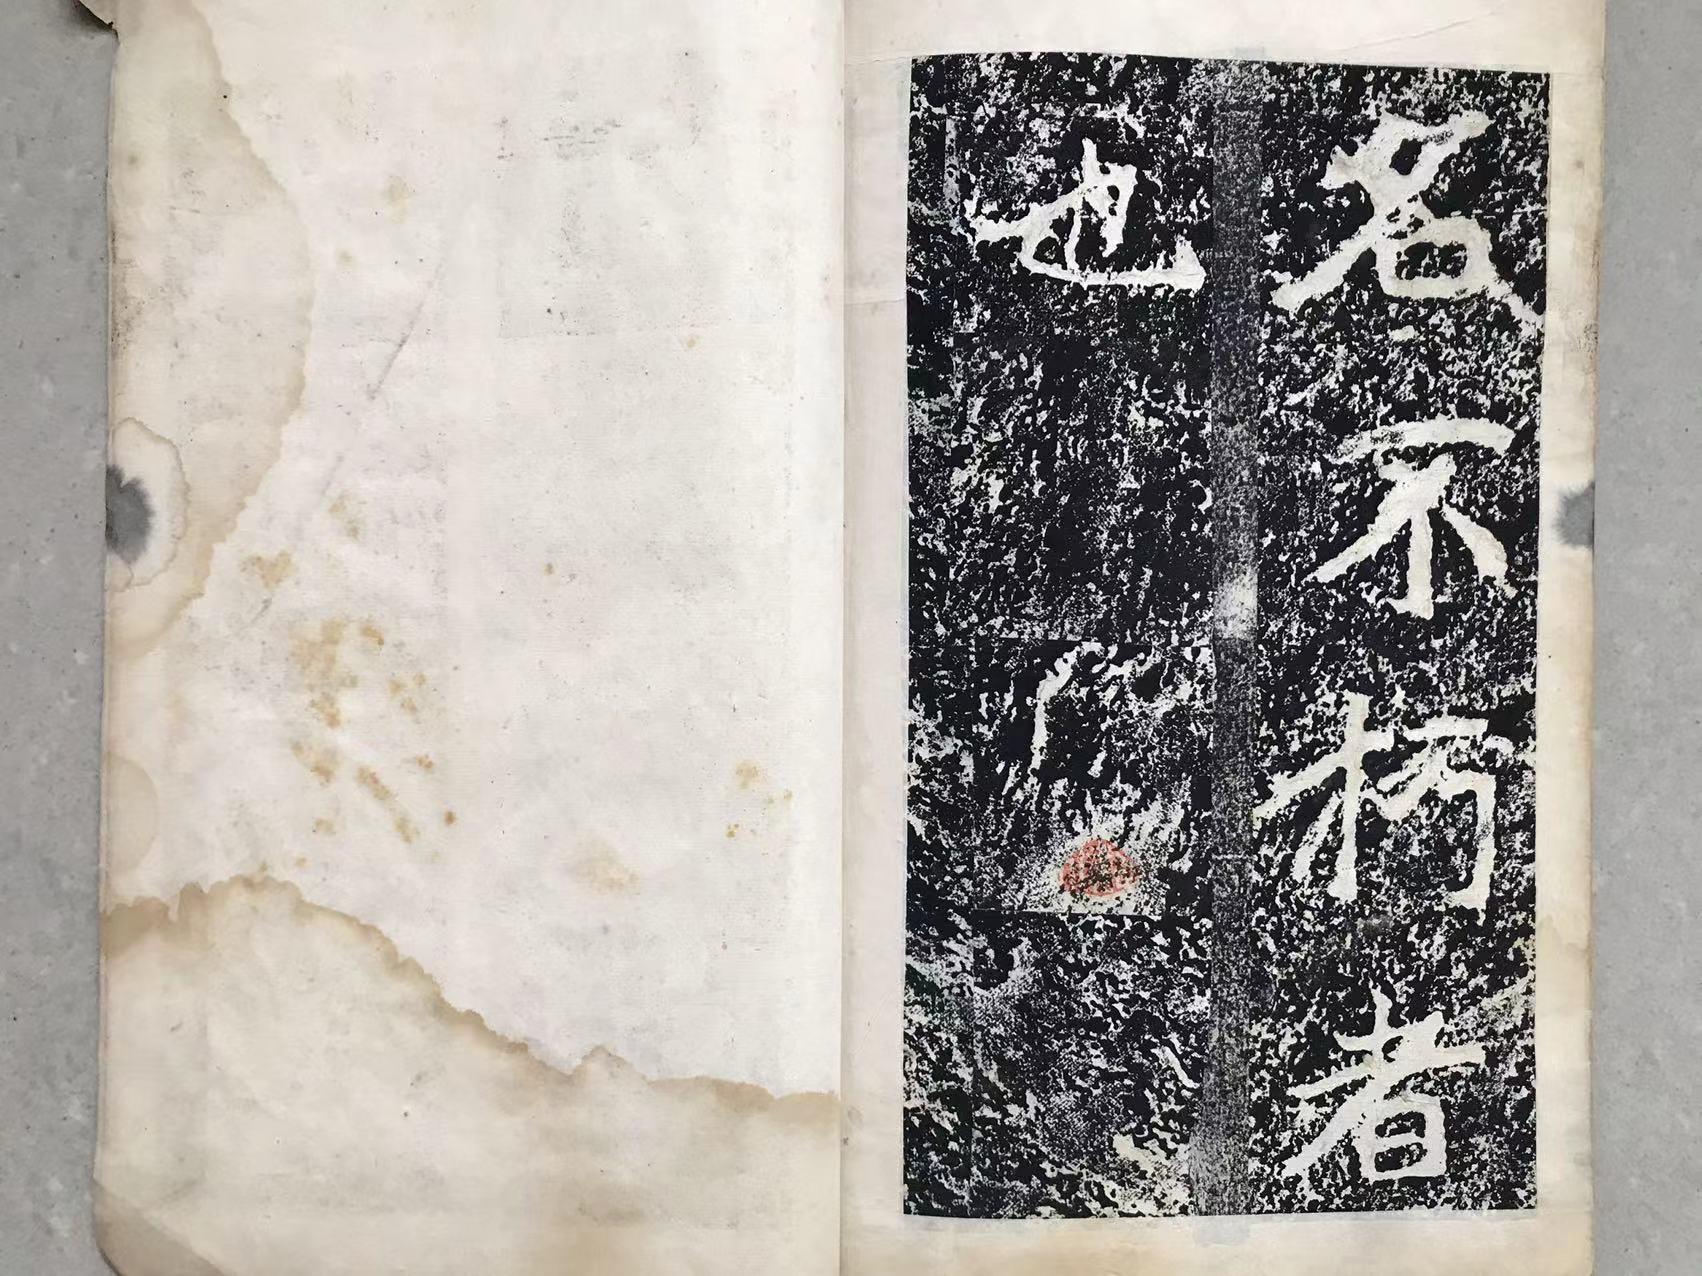 名不朽者
也